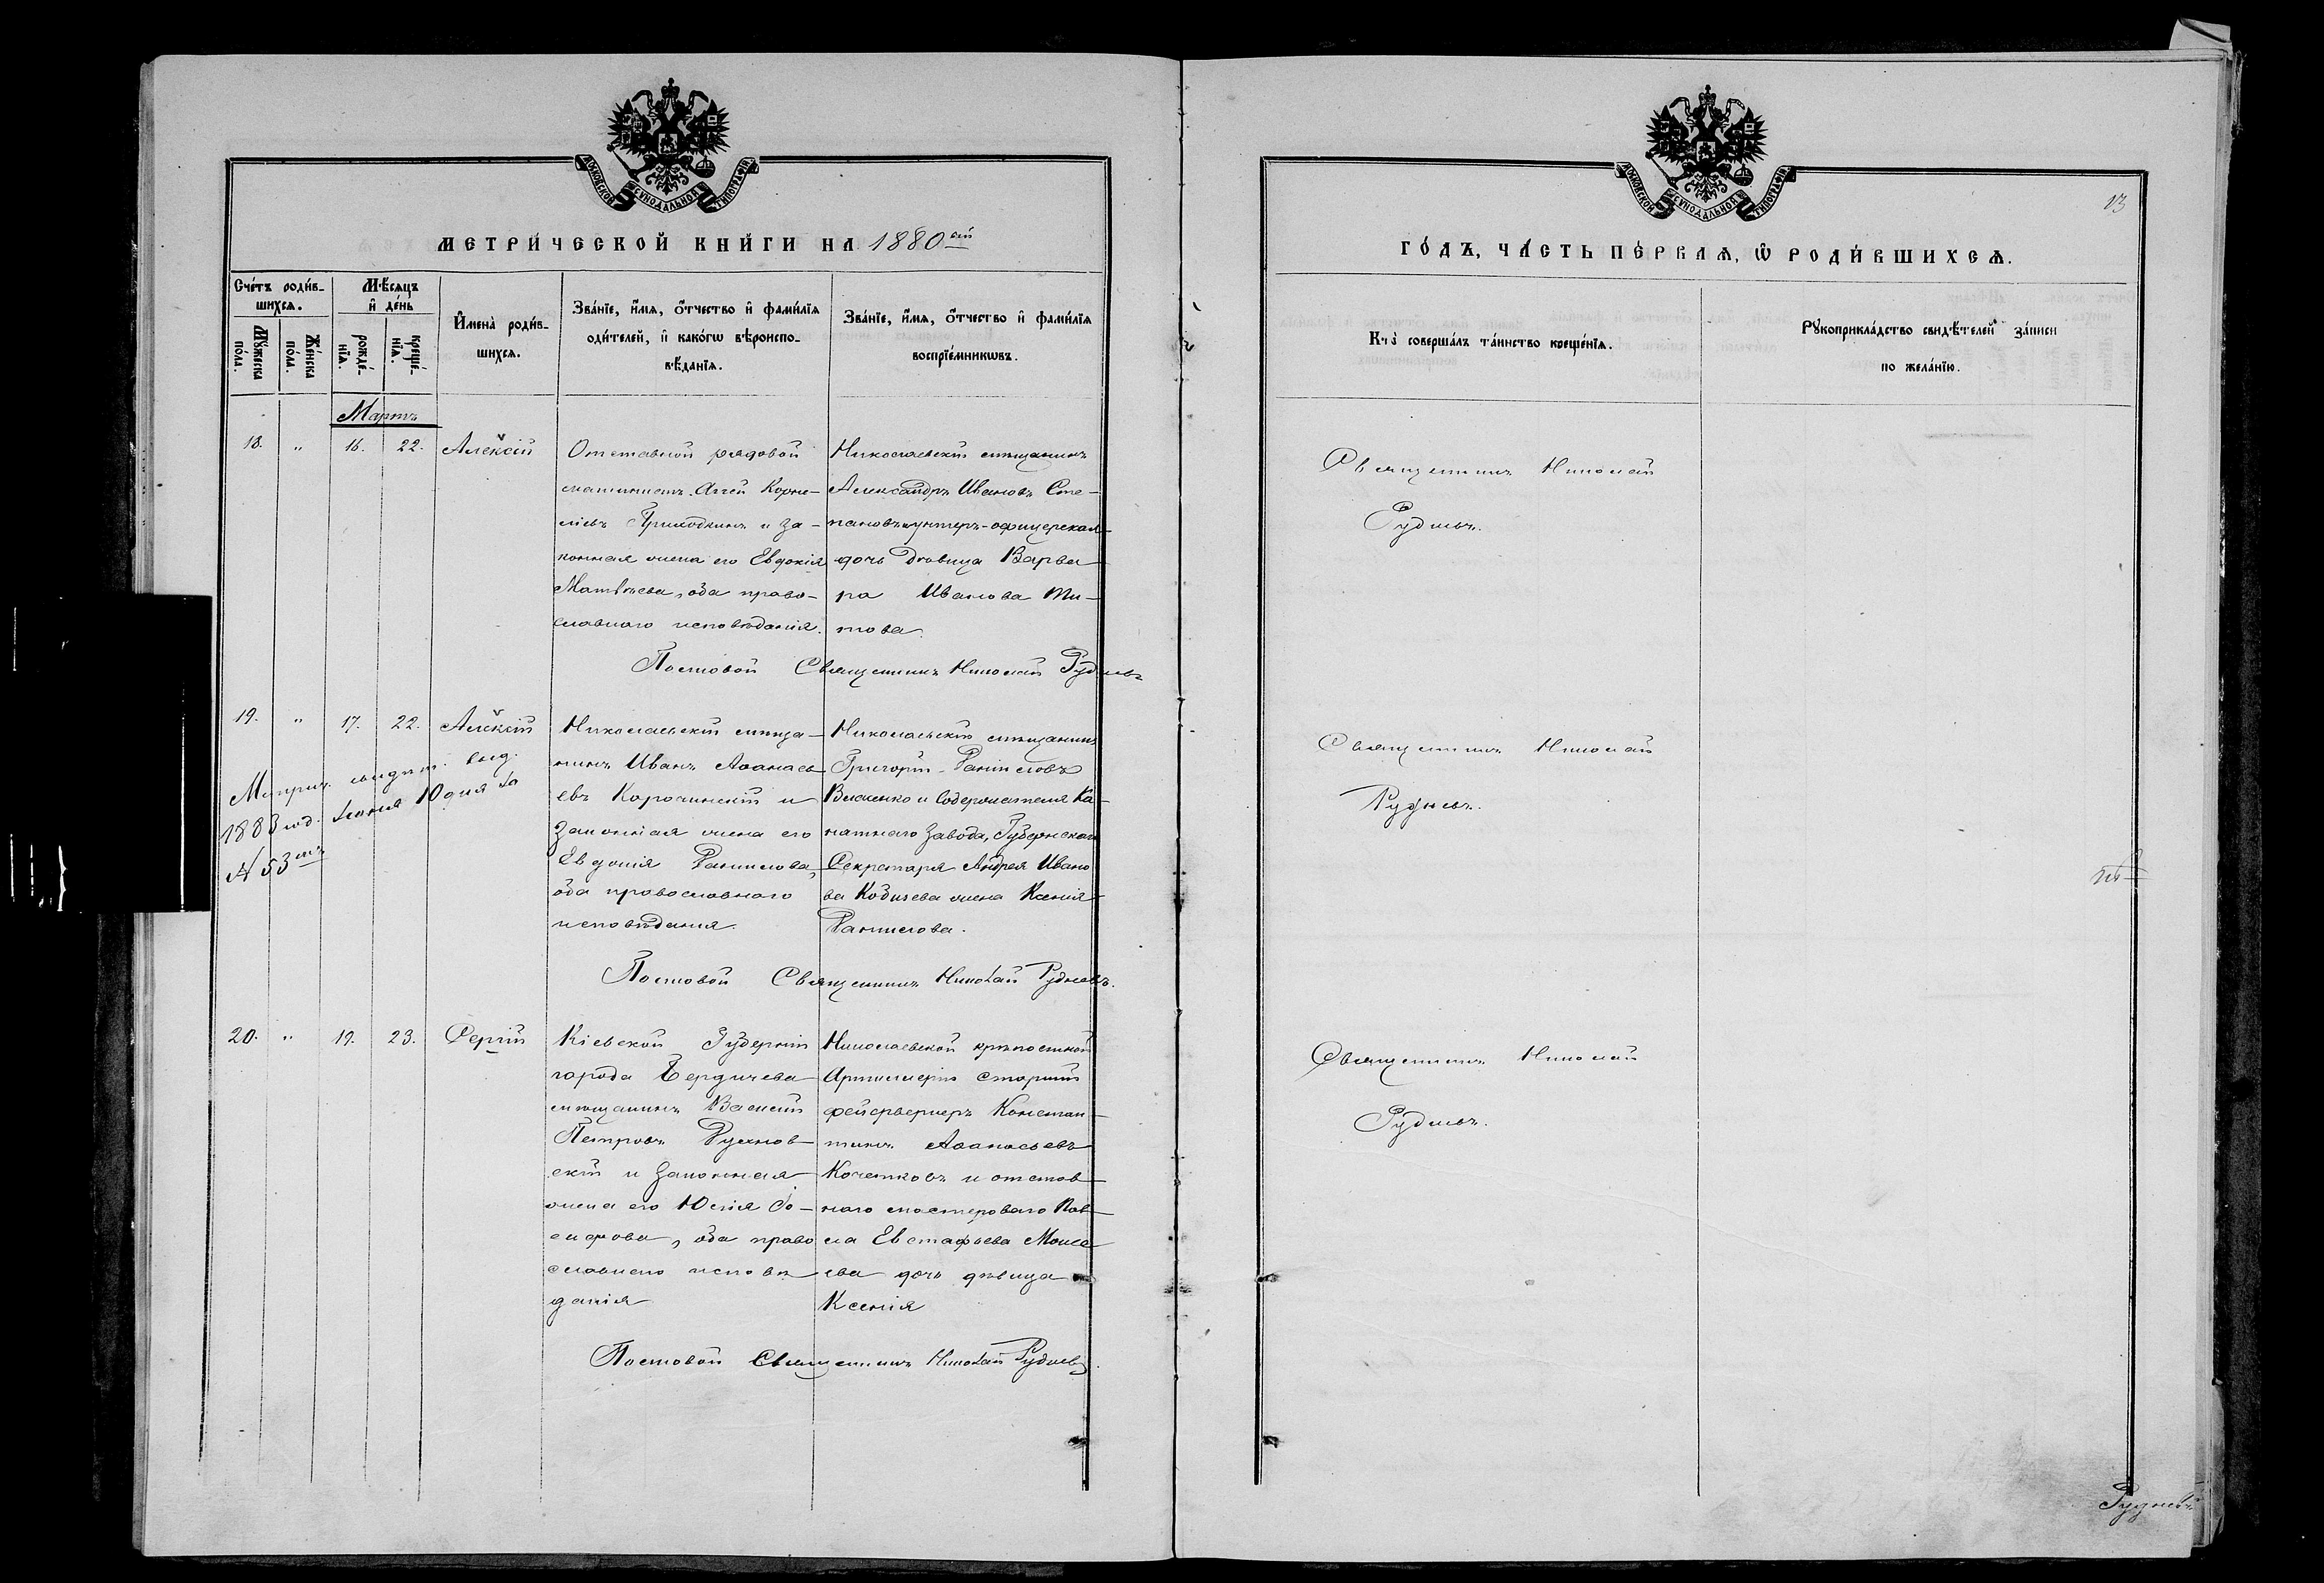 МОСКОВСКОЙ СѴНОДАЛЬНОЙ ТИПОГРАФІИ
МЕТРИ́ЧЕСКОЙ КНИ́ГИ НА 1880 ый
Сче́тъ роди́в-
шихсѧ.
Мꙋ́жеска
по́ла.
Же́нска
по́ла.
Мѣ́сѧцъ
и҆ де́нь
рожде́-
нїѧ.
креще́-
нїѧ.
И҆мена̀ роди́в-
шихсѧ.
Зва́нїе, и҆́мѧ, ѻ҆́тчество и҆ фами́лїѧ
оди́телей, и҆ како́гѡ вѣроиспо-
вѣ́данїѧ.
Зва́нїе, и҆́мѧ, ѻ҆́тчество и҆ фами́лїѧ
воспрїе́мникѡвъ.
Мартъ
18. " 16. 22. Алексій
Отставной рядовой
Корне-
ліевъ Приходкинъ и за-
конная жена его Евдокія
Матвѣева, оба право-
славнаго исповѣданія.
Николаевскій мѣщанинъ
Александръ Ивановъ Сте-
пановъ и унтеръ-офицерская
дочь дѣвица Варва-
ра Иванова Ти-
това.
Постовой Священникъ Николай Рудневъ
19. " 17. 22. Алексій
Метрич. свидѣт. выд.
1883 год. Іюня 10 дня за
№ 53 мъ
Николаевскій мѣща-
нинъ Иванъ Аѳанась-
евъ Корочинскій и
законная жена его
Евдокія Данилова,
оба православнаго
исповѣданія.
Николаевскій мѣщанинъ
Григорій Даниловъ
Власенко и Содержателя Ка-
натнаго завода, Губернскаго
Секретаря Андрея Ивано-
ва Кобычева жена Ксенія
Данилова.
Постовой Священникъ Николай Рудневъ.
20. " 19. 23. Сергій
Кіевской Губерніи
города Бердичева
мѣщанинъ Василій
Петровъ
скій и законная
жена его Юлія Іо-
сифова, оба право-
славнаго исповѣ-
данія
Николаевской крѣпостной
Артиллеріи старшій
фейерверкеръ Констан-
тинъ Аѳанасьевъ
Кочетковъ и отстав-
наго мастероваго Пав-
ла Евстафьева Моисе-
ева дочь дѣвица
Ксенія
Постовой Священникъ Николай Рудневъ.
МОСКОВСКОЙ СѴНОДАЛЬНОЙ ТИПОГРАФІИ
13
ГО́ДЪ, ЧА́СТЬ ПЕ́РВАѦ, Ѡ҆ РОДИ́ВШИХСѦ.
Кто̀ соверша́лъ та́инство креще́нїѧ.
Рꙋкоприкла́дство свидѣ́телей за́писи
по жела́нїю.
Священникъ Николай
Рудневъ.
Священникъ Николай
Рудневъ.
Священникъ Николай
Рудневъ.
Рудневъ